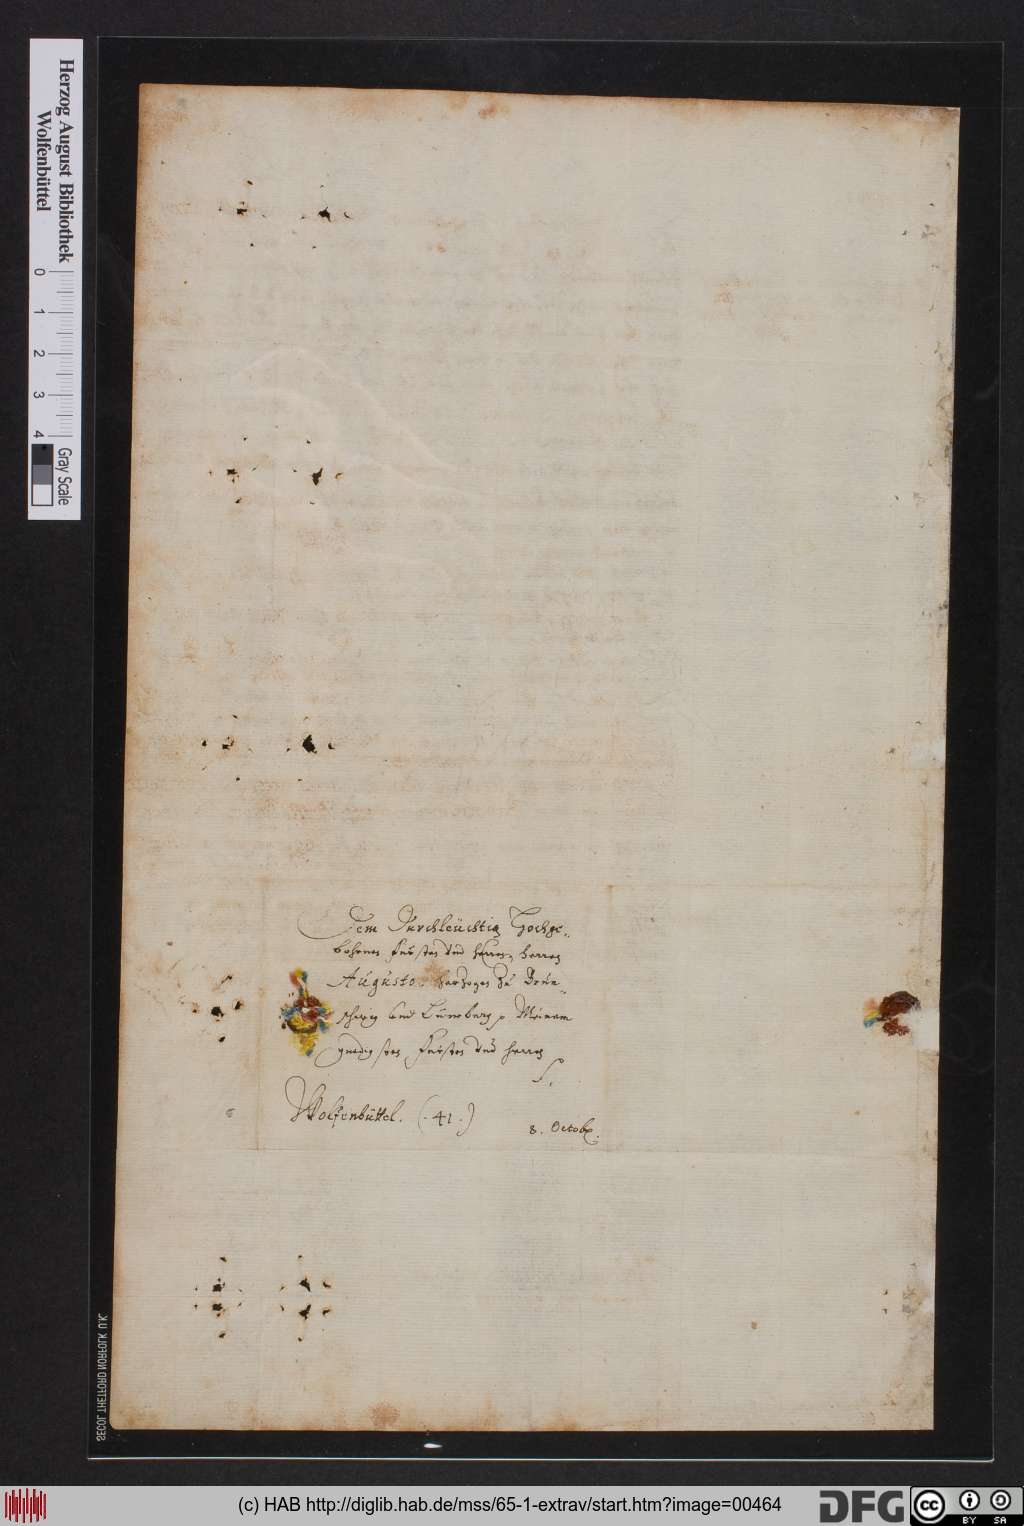 Herzog August Bibliothek
Wolfenbüttel
0 1 2 3 4
Gray Scale
Dem Durchleüchtig Hochge„
bohrnen Fürsten Vnd Herren, Herren
Augusto Herzogen Zu Brun„
schweig Vnd Lünæburg p Meinem
gnedigsten Fürsten Vnd Herren
Wolfenbüttel. (. 41 .)
8. Octob.
SECOL THETFORD NORFOLK U.K.
(c) HAB http://diglib.hab.de/mss/65-1-extrav/start.htm?image=00464
DFG
cc
BY SA